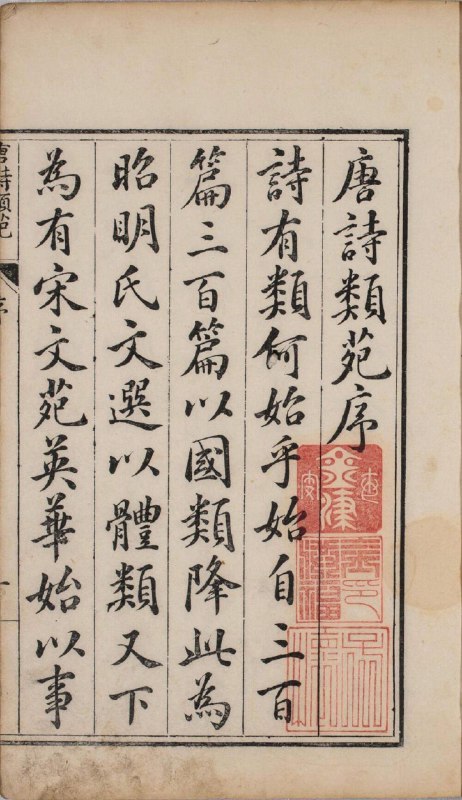 唐詩類苑序
詩有類何始乎始自三百
篇三百篇以國類降此為
昭明氏文選以體類又下
為有宋文苑英華始以事
唐詩類苑
序